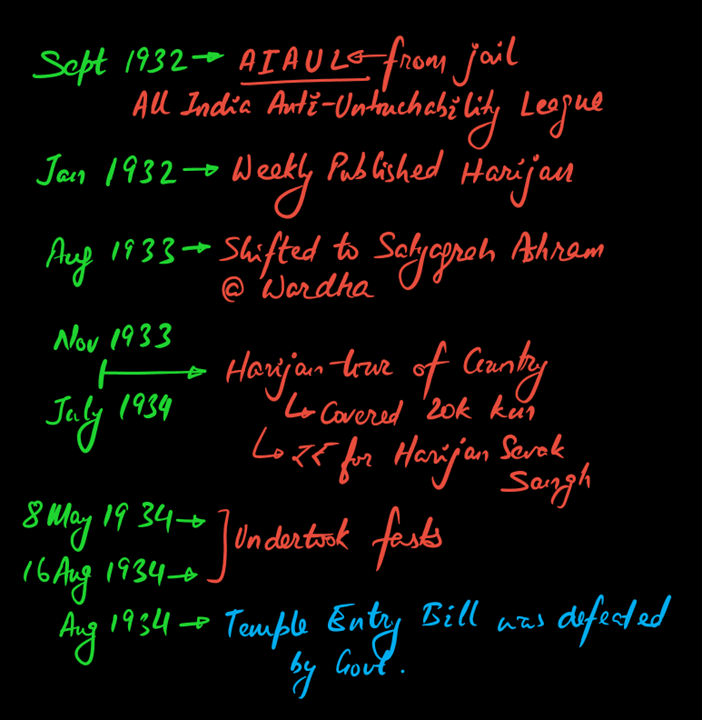 Sept 1932 → AIAUL ← from jail
All India Anti-Untouchability League
Jan 1932 → Weekly Published Harijan
Aug 1933 → Shifted to Satyagrah Ashram
@ Wardha
Nov 1933
→ Harijan tour of Country
July 1934
↳ Covered 20k km
↳ ₹ for Harijan Sevak
Sangh
8 May 1934 →
Undertook fasts
16 Aug 1934 →
Aug 1934 → Temple Entry Bill was defeated
by Govt.